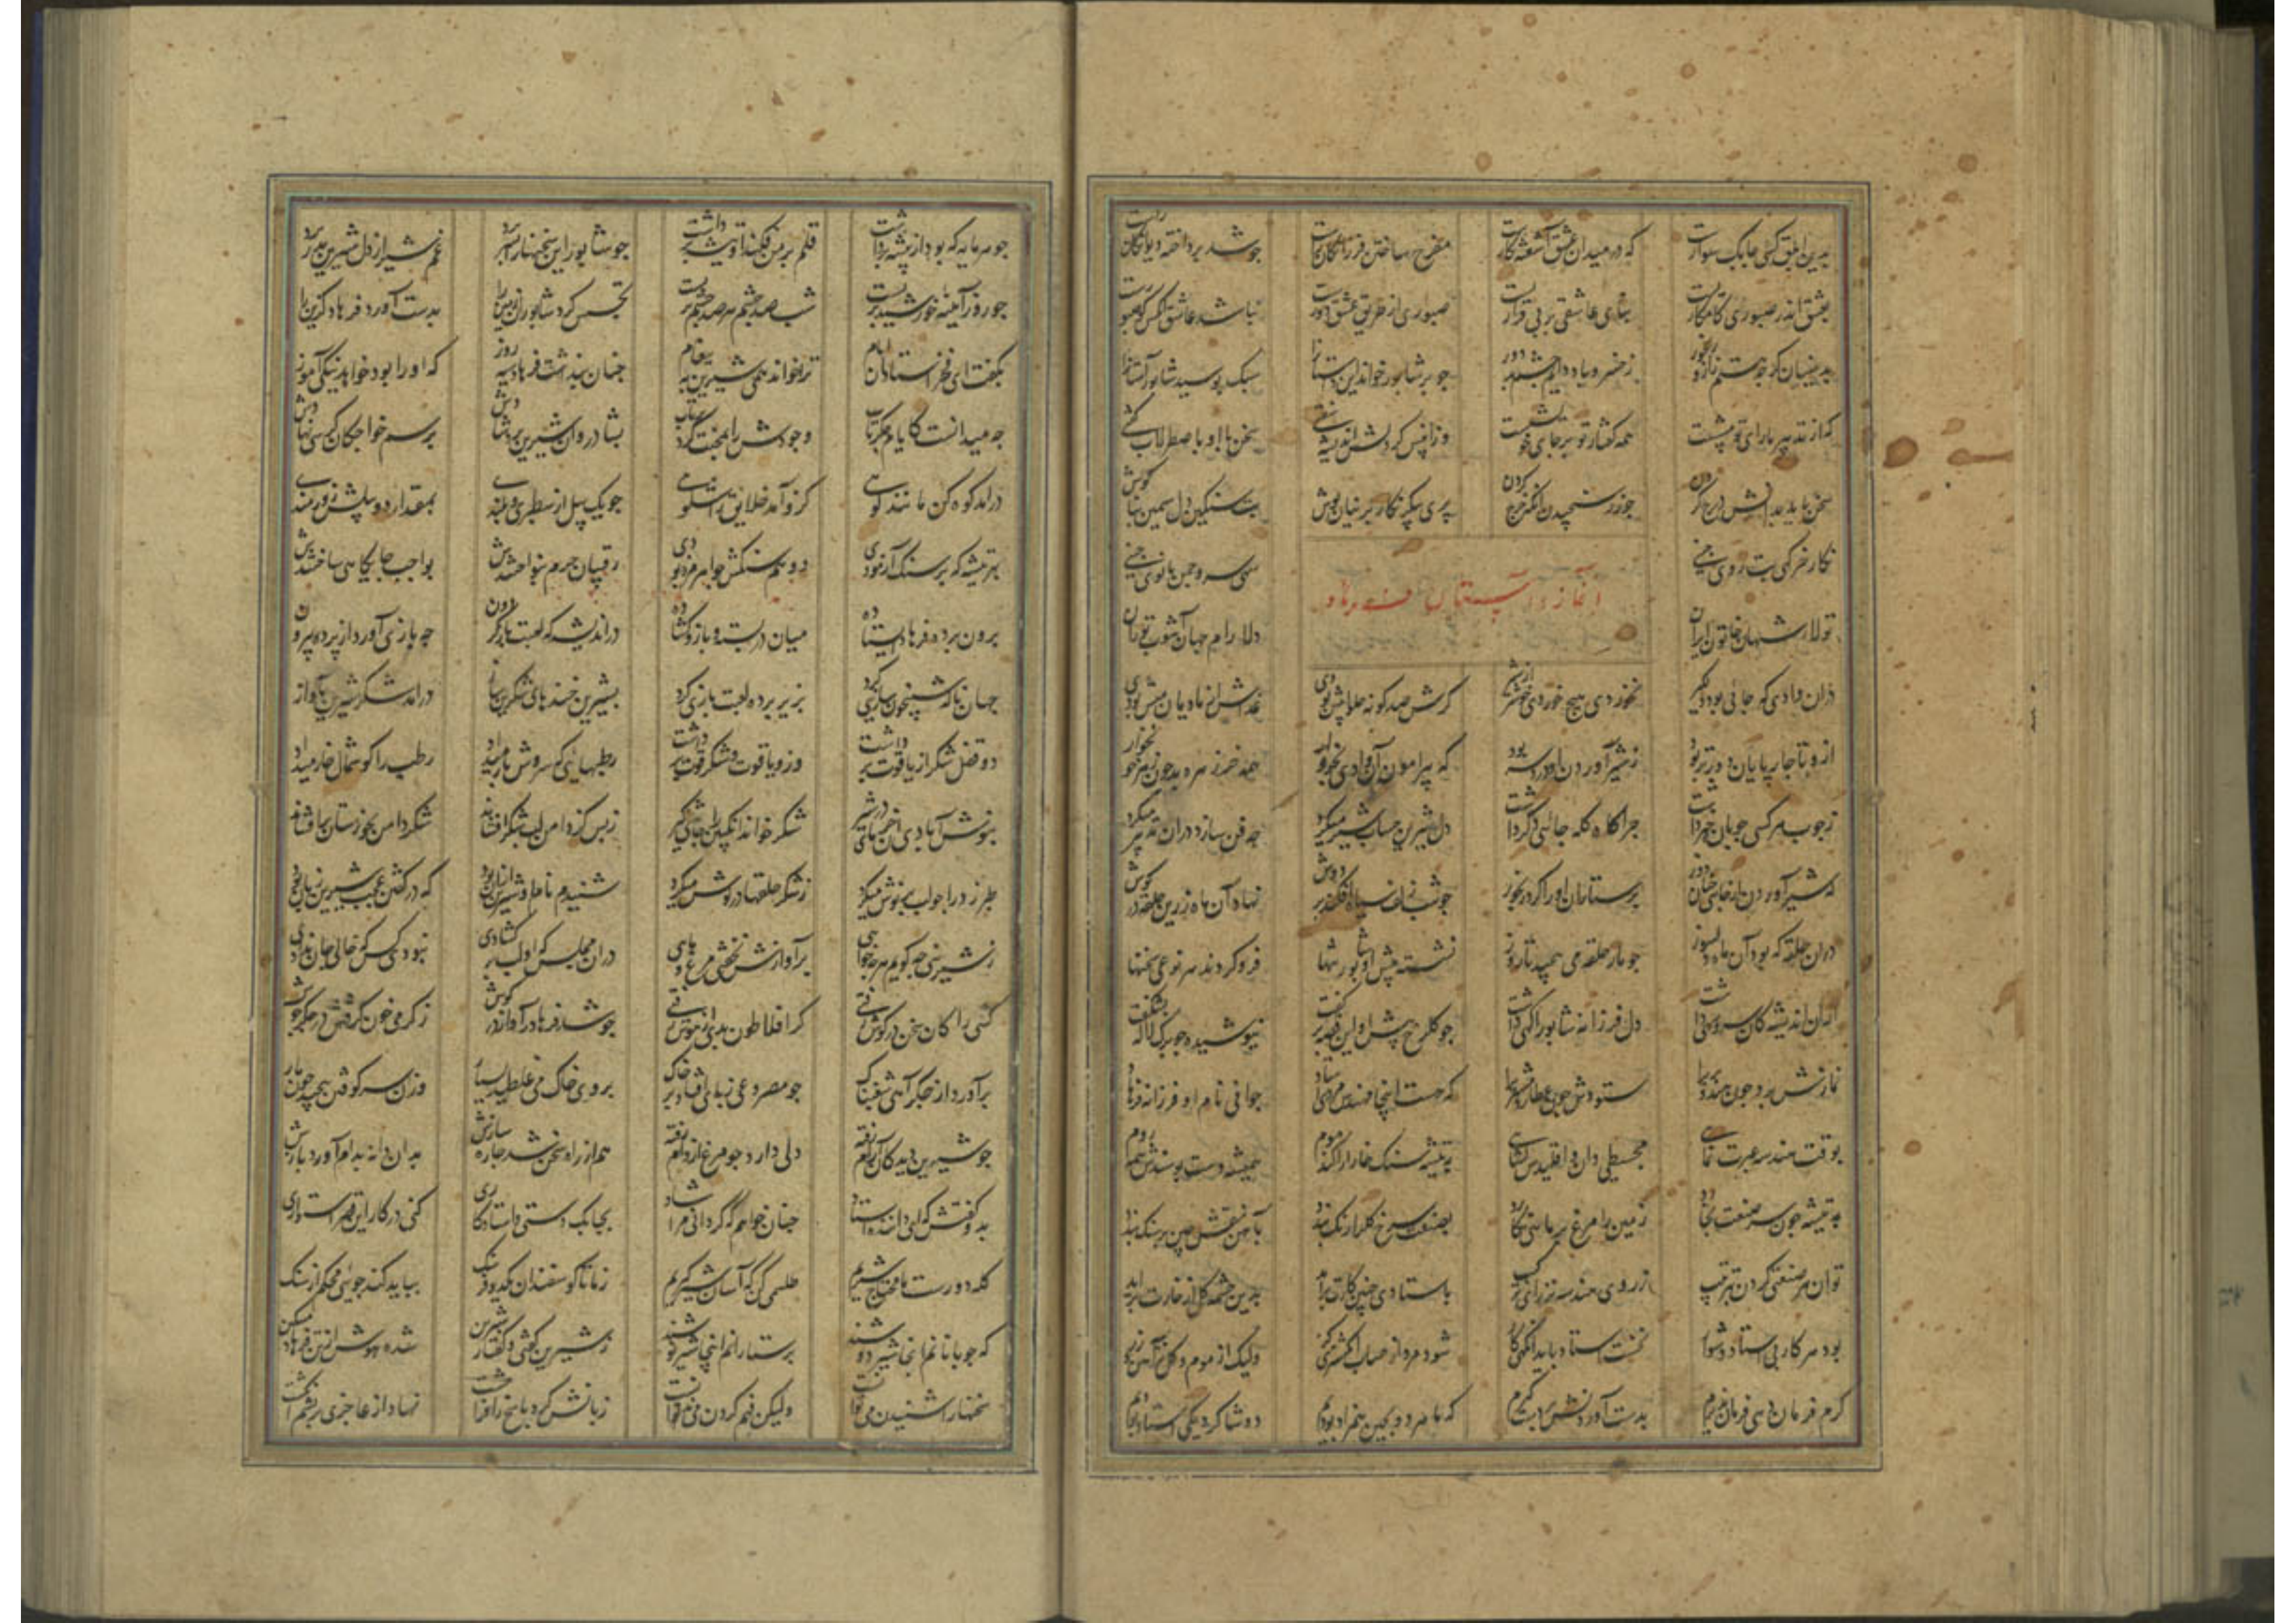 بدین ابلق کسی چابک سوارست که در میدان عشق آشفته کارست مفرح ساختن فرزانگان راست چو شد پرداخته دیوانگان راست
بعشق اندر صبوری بنای عاشقی بر بی قراریست صبوری از طریق عشق دورست نباشد عاشق آنکس کو صبورست
بدینسان گرچه رنجور ز خسرو باد دایم چشم بد دور چو بر شاپور خواند این داستان را سبک بوسید شاپور آستان را
که از تدبیر ما رای تو بیشست همه گفتار تو بر جای خویشست وزان پس گر دلش اندیشه سفتی سخن با او باصطرلاب گفتی
سخن باید بدانش درج کردن چو زر سنجیدن آنگه خرج کردن پری پیکر نگار پرنیان پوش بت سنگین دل سیمین بناگوش
نگار خرگهی بت روی چینی سهی سرو چمن بانوی چینی
آغاز داستان فرهاد
شهان خاتون ایران دلارام جهان آشوب توران
دران وادی که جایی بود دلگیر نخوردی هیچ خوردی خوشتر از شیر گرش صد گونه حلوا پیش بودی غذاش از مادیان و میش بودی
ازو تا چارپایان دورتر بود ز شیر آوردن او را دردسر بود که پیرامون آن وادی بخروار همه خرزهره بد چون
چوپان خبر داشت چراگاه گله جای دگر داشت دل شیرین حساب شیر میکرد چه فن سازد دران تدبیر میکرد
که شیر آوردن از جایی چنان دور پرستاران او را کرد رنجور چو شب زلف سیاه افکند بر دوش نهاد آن ماه زرین حلقه در گوش
دران حلقه که بود آن ماه دلسوز چو مار حلقه می پیچید تا روز نشسته پیش او شاپور تنها فرو کردند هر نوعی سخنها
ازان اندیشه کان سرو سهی داشت دل فرزانه شاپور آگهی داشت چو گلرخ پیش او این قصه برگفت نیوشیده چو برگ لاله بشکفت
نمازش برد چون هندو پری را ستودش چون عطارد مشتری را که هست اینجا مهندس مردی استاد جوانی نام او فرزانه فرهاد
بوقت هندسه عبرت نمای مجسطی دان و اقلیدس گشای بتیشه سنگ خارا را کند موم همیشه دست بوسندش همه روم
بتیشه چون سر صنعت بخارد زمین را مرغ بر ماهی نگارد بصنعت سرخ گل را رنگ بندد بآهن نقش چین بر سنگ بندد
توان هر صنعتی کردن بترتیب ز روی هندسه نز رای باستادی چنین کارت برآید بدین چشمه گل از خارت برآید
بود هر کار بی استاد دشوار نخست استاد باید آنگهی کار شود مرد از حساب انگشتری گر ولیک از موم و گل نز آهن و زر
گرم فرمان دهی فرمان پذیرم بدست آوردنش بر دست گیرم که ما هر دو بچین همزاد بودیم دو شاگرد یکی استاد بودیم
چو هر مایه که بود از پیشه برداشت قلم بر من فکند او تیشه برداشت چو شاپور این سخنها را بسر برد غم شیر از دل شیرین بدر برد
چو روز آیینه خورشید بربست شب صد چشم هر صد چشم بربست تجسس کرد شاپور آن زمین را بدست آورد فرهاد گزین را
بگفت ای فخر استادان ایام ترا خواند همی شیرین به پیغام چنان پنداشت فرهاد سیه روز که او را بود خواهد نیکی آموز
چه میدانست کایام جگرتاب وجودش را بمحنت بشادروان شیرین برد شادش برسم خواجگان کرسی نهادش
درآمد کوه کن مانند کوهی کزو آمد خلایق را شکوهی چو یک پیل از سطبری و بلندی بمقدار دو پیلش زورمندی
بهر تیشه که بر سنگ آزمودی دو هم سنگش جواهر مزد بودی رقیبان حرم بنواختندش بواجب جایگاهی ساختندش
برون پرده فرهاد ایستاده میان دربسته و بازو گشاده در اندیشه که لعبت باز گردون چه بازی آورد از پرده بیرون
جهان ناگه شبیخون سازیی کرد بزیر پرده لعبت بازیی کرد بشیرین خنده های شکرین ساز درآمد شکر شیرین بآواز
دو قفل شکر از یاقوت برداشت وزو یاقوت و شکر قوت برداشت رطبهایی که سروش بار میداد رطب را گوشمال خار میداد
بنوش آبادی آن خرمای در شیر شکر خواند انگبین را چاشنی گیر ز بس کز دامن لب شکر افشاند شکر دامن بخوزستان برافشاند
طبرزد را چو لب پر نوش میکرد ز شکر حلقها در گوش میکرد شنیدم نام او شیرین ازان بود که در گفتن عجب شیرین زبان بود
ز شیرینی چه گویم هرچه خواهی بر آوازش بخفتی مرغ و ماهی دران مجلس که او لب برگشادی نبودی کس که حالی جان ندادی
کسی را کان سخن در گوش رفتی گر افلاطون بدی از هوش رفتی چو شد فرهاد را آواز در گوش ز گرمی خون گرفتش در جگر جوش
برآورد از جگر آهی شغبناک چو مصروعی ز پای افتاد بر خاک بروی خاک می غلطید بسیار وزان سر کوفتن پیچید چون مار
چو شیرین دید کان آرام رفته دلی دارد چو مرغ از دام رفته هم از راه سخن شد چاره سازش بدان دانه بدام آورد بازش
بدو گفتش که ای داننده استاد چنان خواهم که گردانی مرا شاد بچابک دستی و استادکاری کنی در کار این قصر استواری
گله دورست و ما محتاج شیریم طلسمی کن که آسان شیر گیریم ز ما تا گوسفندان یک دو فرسنگ بباید کند جویی محکم از سنگ
که چوپانانم آنجا شیر دوشند پرستارانم اینجا شیر نوشند ز شیرین گفتن و گفتار شیرین شده هوش از تن فرهاد مسکین
سخنها را شنیدن می توانست ولیکن فهم کردن می زبانش کرد پاسخ را نهاد از عاجزی بر چشم انگشت